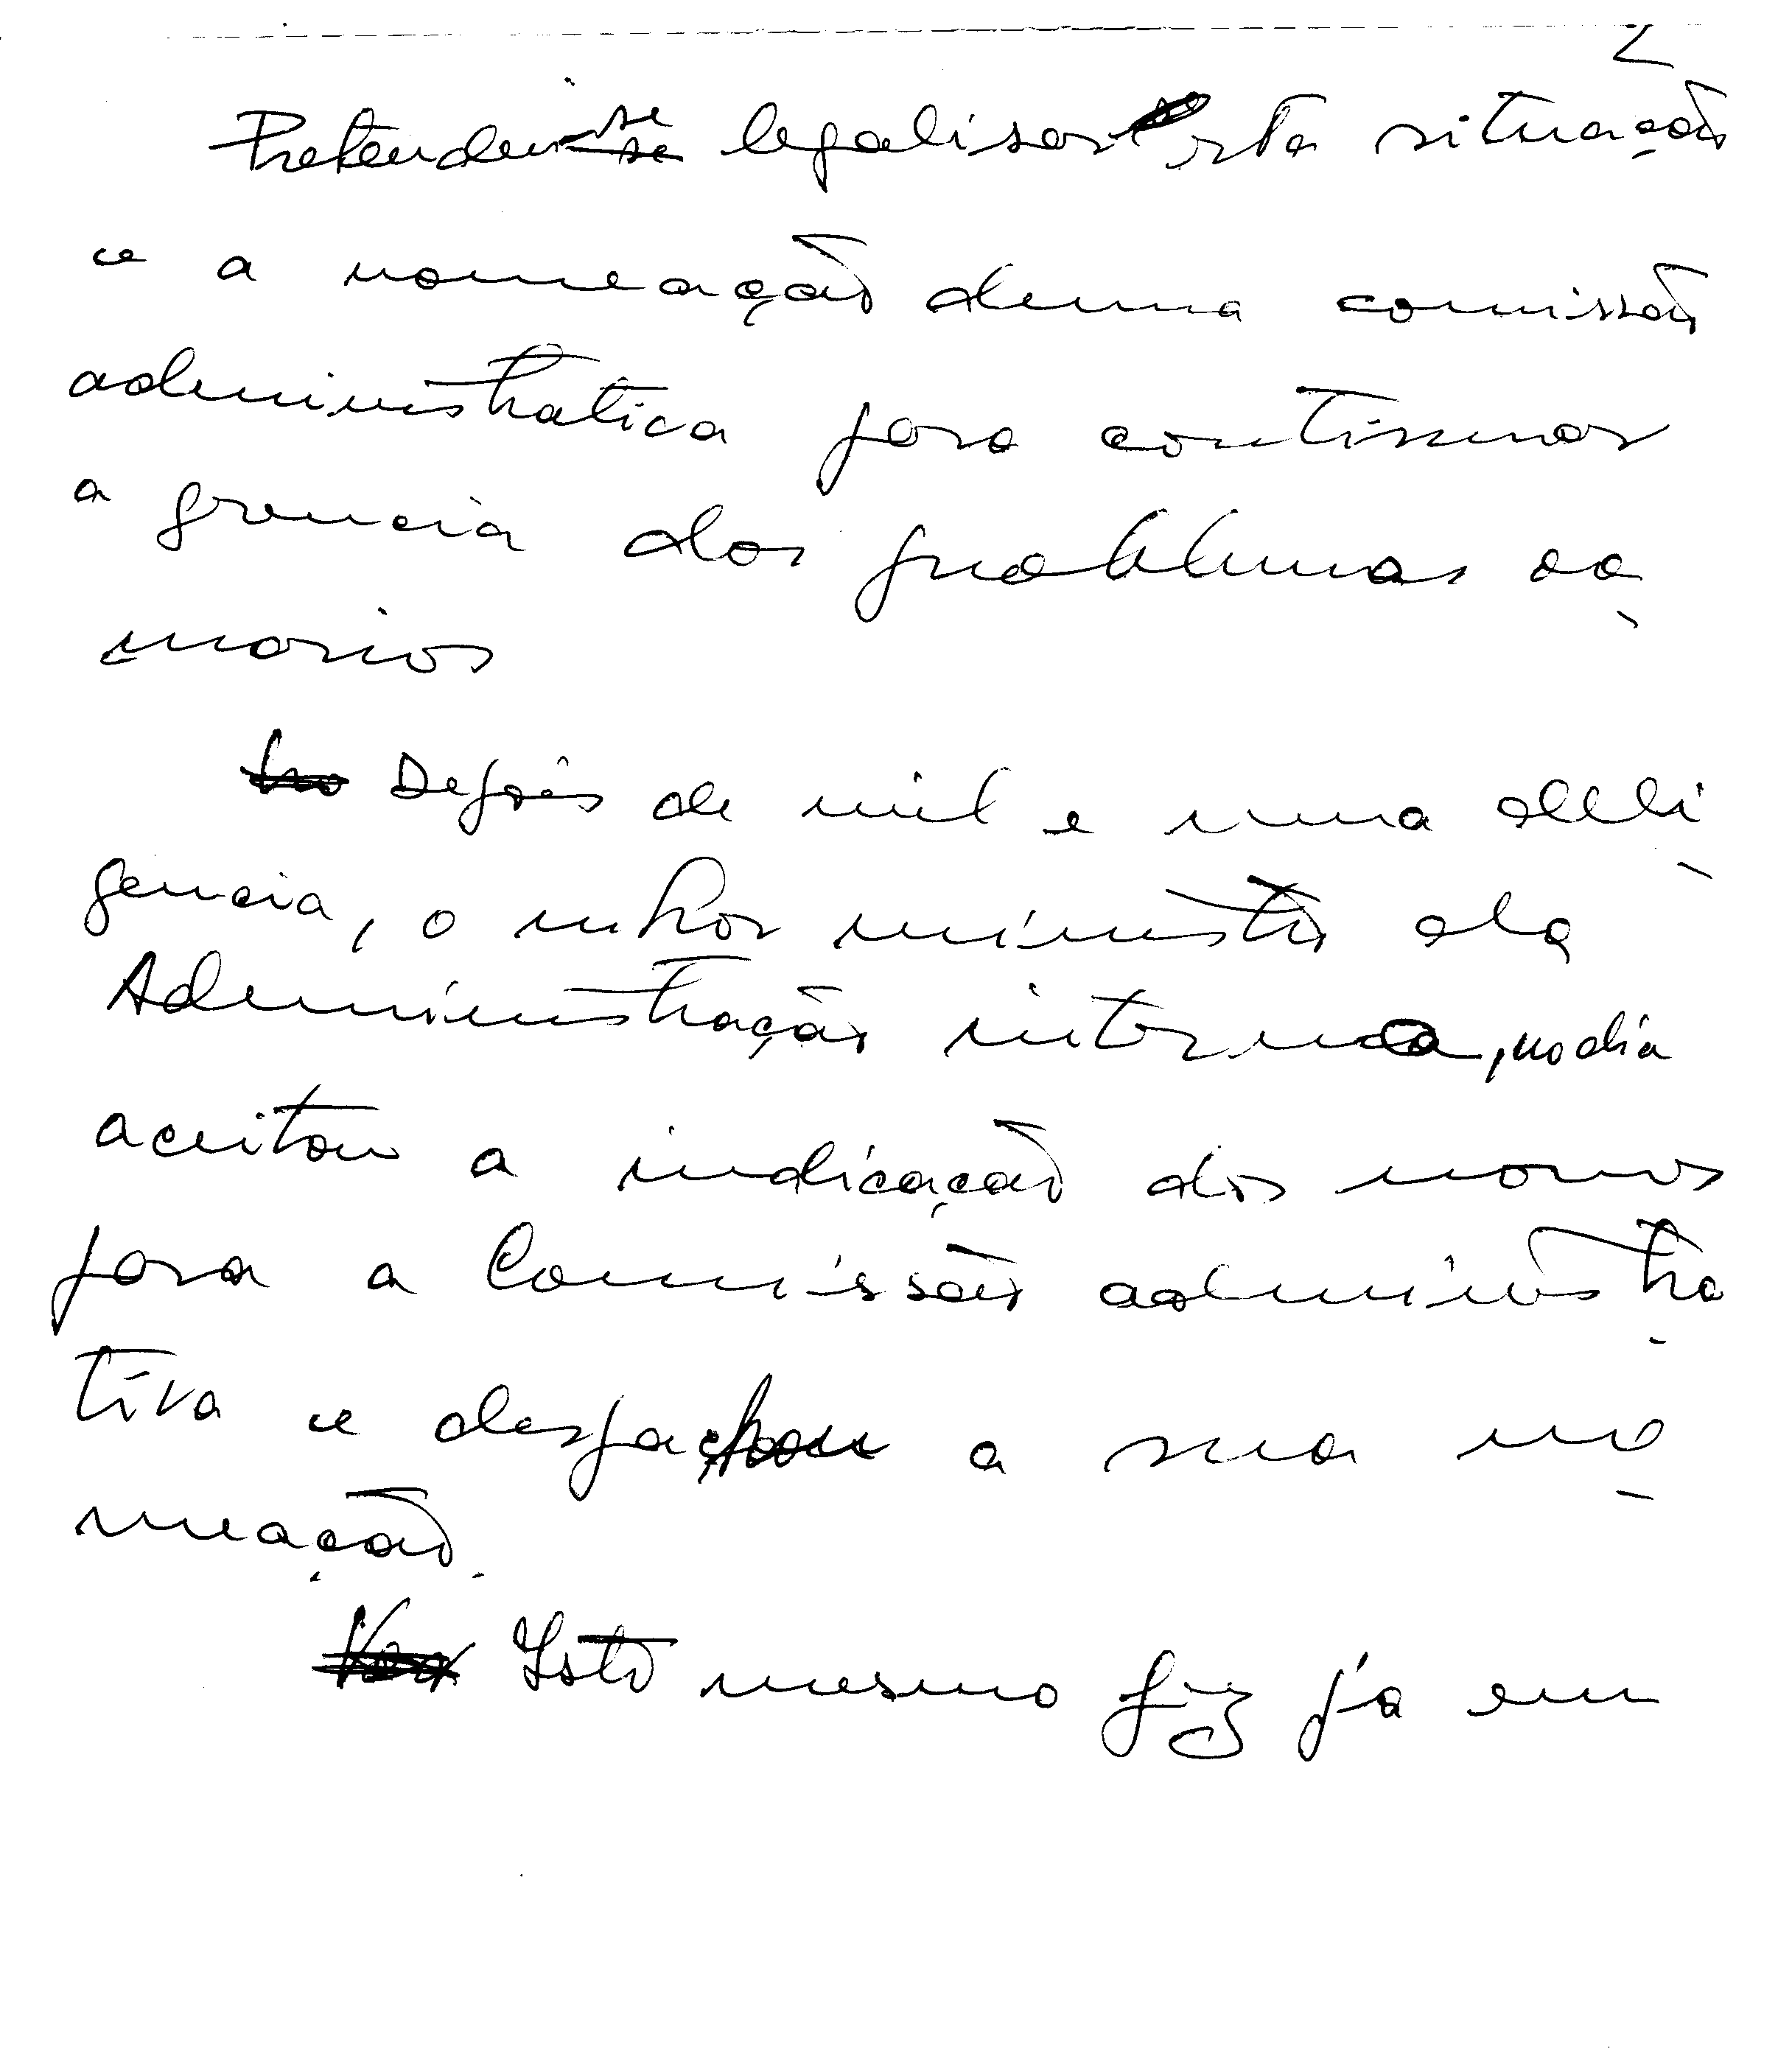 2
Pretendeu-se se legalisar esta situação
e a nomeação de uma comissão
administrativa para continuar
a gerencia dos problemas ca-
marios
Depois de mil e uma deli-
gencia, o senhor ministro da
Administração interna, no dia
aceitou a indicação dos nomes
para a Comissão administra-
tiva e despachou a sua no-
meação.
Isto mesmo fez já em